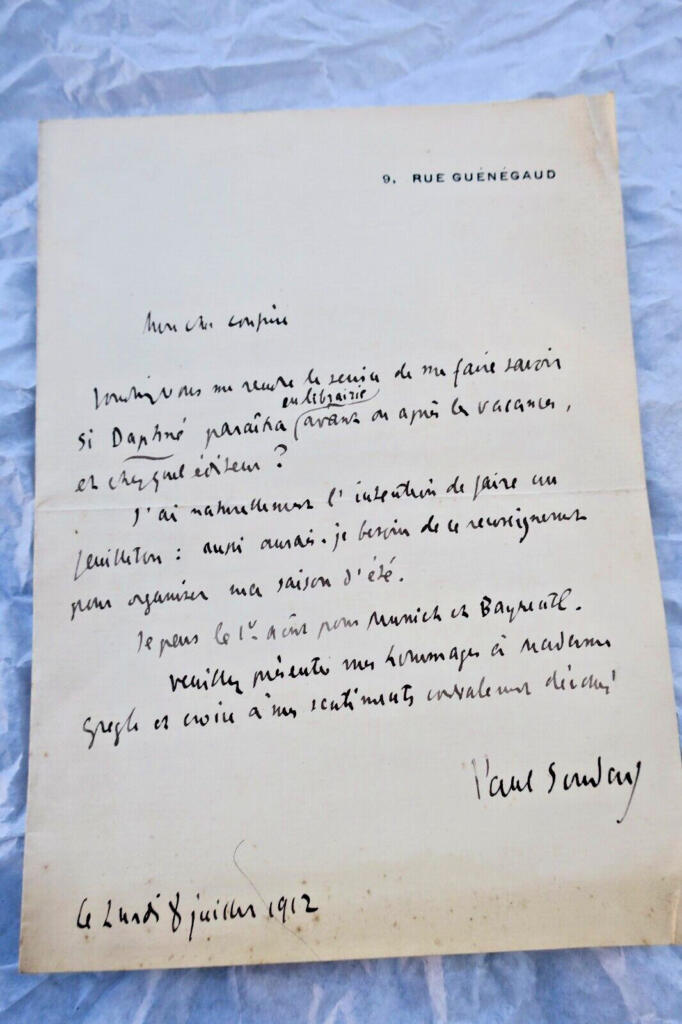 9, RUE GUÉNÉGAUD
Mon cher confrère
Voudriez-vous me rendre le service de me faire savoir
en librairie
si Daphné paraîtra avant ou après les vacances,
et chez quel éditeur ?
J'ai naturellement l'intention de faire un
feuilleton : aussi aurais-je besoin de ce renseignement
pour organiser ma saison d'été.
Je pars le 1er août pour Munich et Bayreuth.
Veuillez présenter mes hommages à Madame
Gregh et croire à mes sentiments cordialement dévoués
Paul Souday
le Lundi 8 juillet 1912